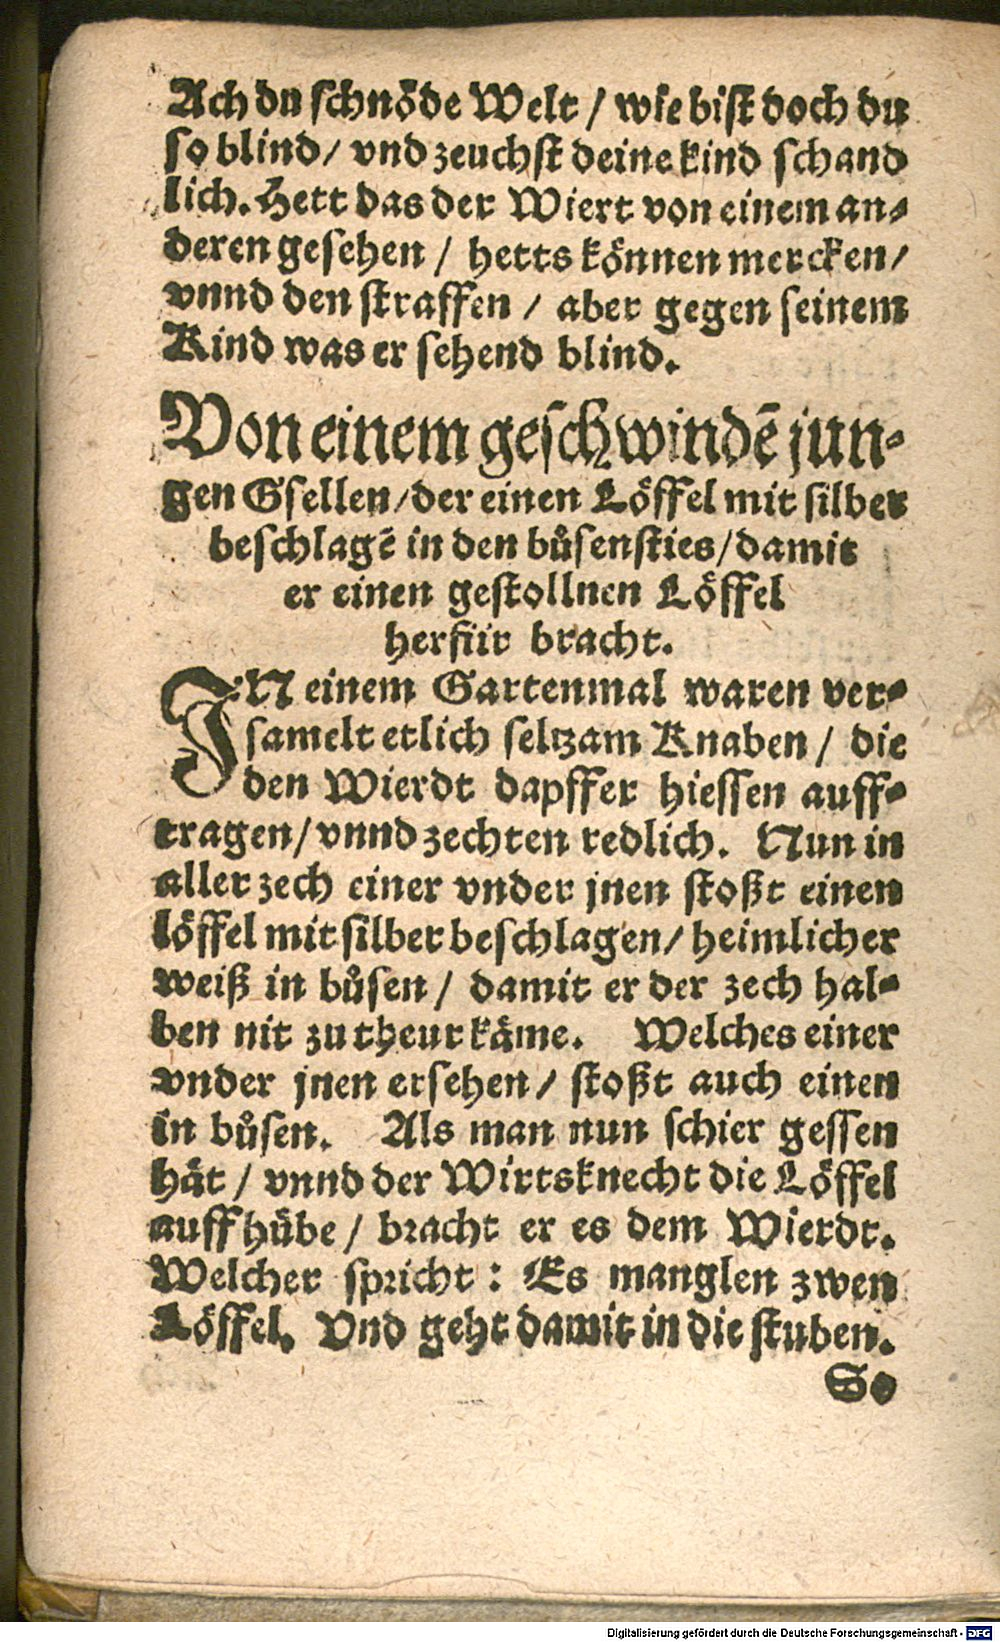 Ach du schnöde Welt / wie bist doch du
so blind / vnd zeuchst deine kind schand
lich. Hett das der Wiert von einem an-
deren gesehen / hetts können mercken /
vnnd den straffen / aber gegen seinem
Kind was er sehend blind.
Von einem geschwindē jun-
gen Gsellen / der einen Löffel mit silber
beschlagē in den bůsen sties / damit
er einen gestollnen Löffel
herfür bracht.
IN einem Gartenmal waren ver-
samelt etlich seltzam Knaben / die
den Wierdt dapffer hiessen auff-
tragen / vnnd zechten redlich. Nun in
aller zech einer vnder jnen stoßt einen
löffel mit silber beschlagen / heimlicher
weiß in bůsen / damit er der zech hal-
ben nit zu theur käme. Welches einer
vnder jnen ersehen / stoßt auch einen
in bůsen. Als man nun schier gessen
hät / vnnd der Wirtsknecht die Löffel
auff hübe / bracht er es dem Wierdt.
Welcher spricht : Es manglen zwen
Löffel. Vnd geht damit in die stuben.
So
Digitalisierung gefördert durch die Deutsche Forschungsgemeinschaft - DFG